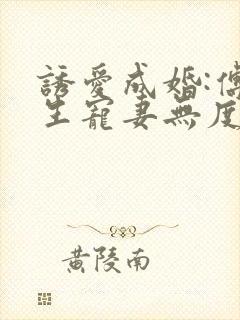 誘愛成婚:傅
生寵妻無度
黃陵南